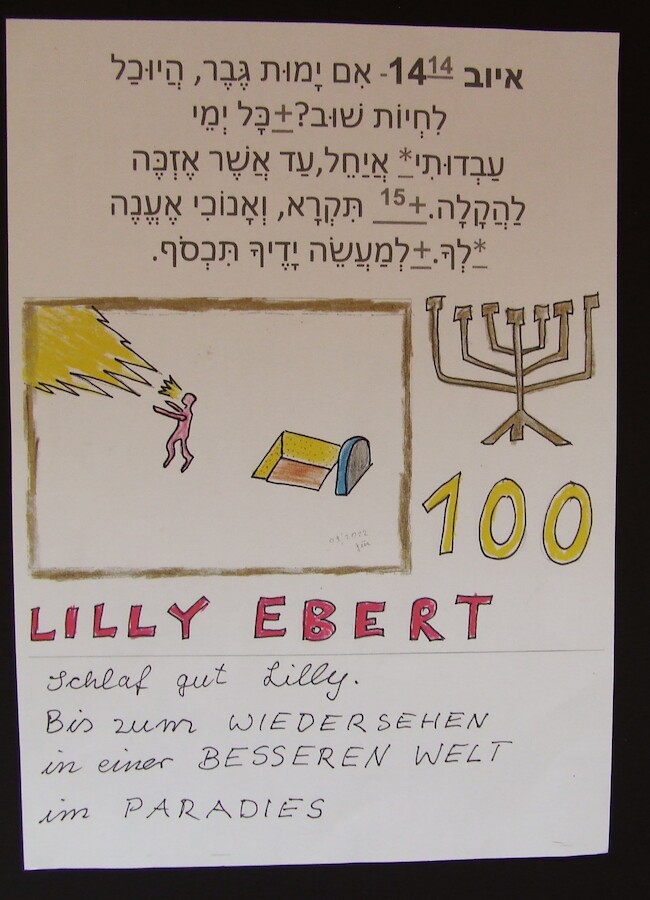 איוב 14¹⁴- אִם יָמוּת גֶּבֶר, הֲיוּכַל
לִחְיוֹת שׁוּב?+כָּל יְמֵי
עַבְדוּתִי* אֲיַחֵל,עַד אֲשֶׁר אֶזְכֶּה
לַהֲקָלָה.+¹⁵ תִּקְרָא, וְאָנוֹכִי אֶעֱנֶה
*לְךָ.+לְמַעֲשֵׂה יָדֶיךָ תִּכְסֹף.
100
LILLY EBERT
Schlaf gut Lilly.
Bis zum WIEDERSEHEN
in einer BESSEREN WELT
im PARADIES